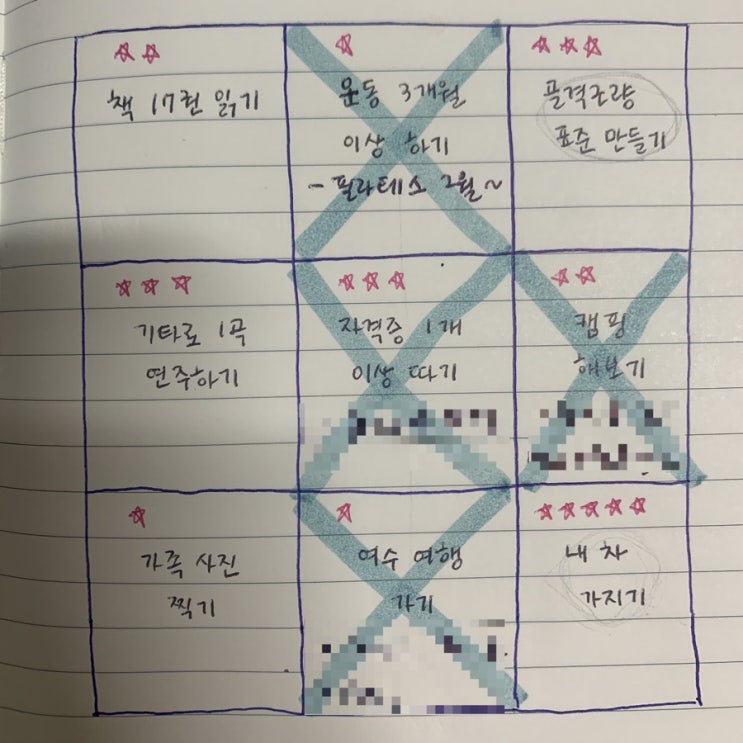 책 17권 읽기
운동 3개월
이상 하기
- 필라테스 2월 ~
골격근량
표준 만들기
기타로 1곡
연주하기
자격증 1개
이상 따기
캠핑
해보기
가족 사진
찍기
여수 여행
가기
내 차
가지기